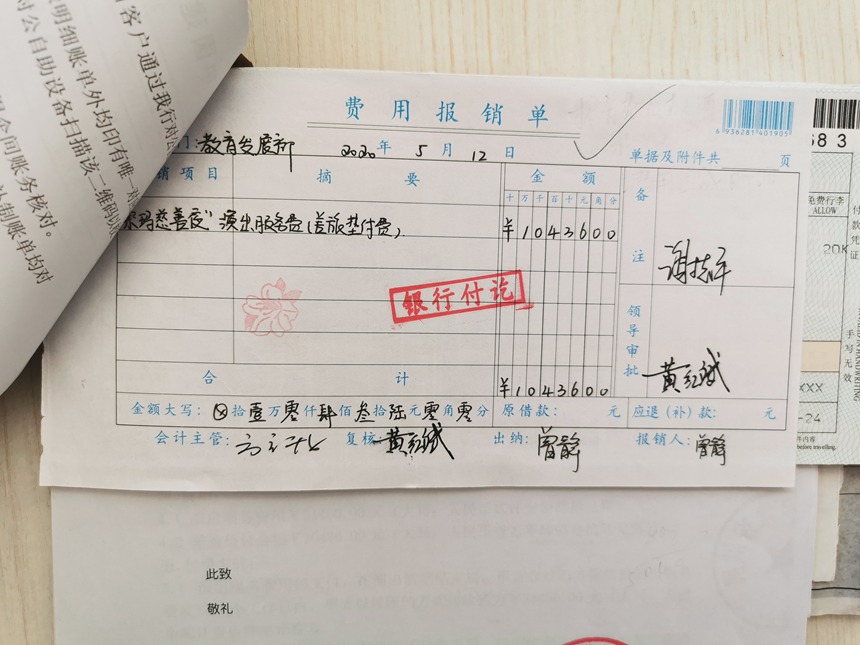 客户通过我行对
明细账单外均印有唯一对
对公自助设备扫描该二维码以
金间账务核对。
补制账单均对
费用报销单
6936281401905
门:教育发展部 2020年 5月 12日 单据及附件共 页
销项目 摘要 金额 备注
十万千百十元角分
慈善夜”演出服务费(差旅垫付费) ¥1043600
银行付讫
领导审批 黄红斌
合计 ¥1043600
金额大写: ⊗拾壹万零仟肆佰叁拾陆元零角零分 原借款: 元 应退(补)款: 元
会计主管: 复核 黄红斌 出纳: 曾静 报销人: 曾静
683
免费行李
ALLOW
20K
付款凭证
手写无效
XXX
-24
before travelling.
此致
敬礼